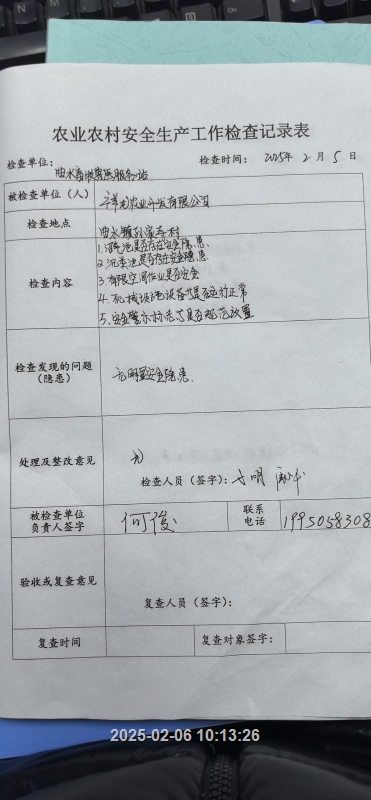 农业农村安全生产工作检查记录表
检查单位：曲水畜牧兽医服务站 检查时间：2025年 2 月 5 日
被检查单位（人） 农业开发有限公司
检查地点 曲水镇 村
检查内容 1.沼气池是否存在安全隐患.
2.沉淀池是否存在安全隐患.
3.有限空间作业是否安全
4.机械设备是否运行正常
5.安全警示标志是否规范设置
检查发现的问题（隐患） 无明显安全隐患.
处理及整改意见 无
检查人员（签字）：
被检查单位负责人签字 何俊 联系电话 1995058308
验收或复查意见
复查人员（签字）：
复查时间 复查对象签字：
2025-02-06 10:13:26